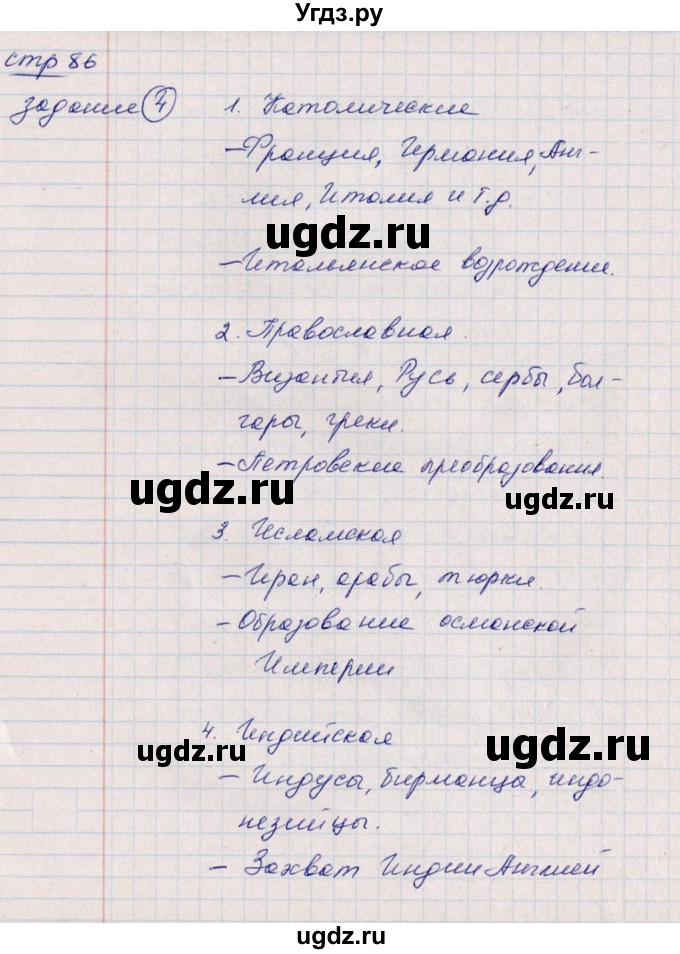 Угдз.ру
стр 86
задание 4
1. Католические
– Франция, Германия, Анг-
лия, Италия и т.д.
ugdz.ru
– Итальянское возрождение.
2. Православная.
– Византия, Русь, сербы, бол-
гары, греки.
– Петровские преобразования.
ugdz.ru
ugdz.ru
3. Исламская
– Иран, арабы, тюрки.
– Образование османской
Империи
4. Индийская
ugdz.ru
ugdz.ru
– Индусы, бирманца, индо-
незийцы.
– Захват Индии Англией
ugdz.ru